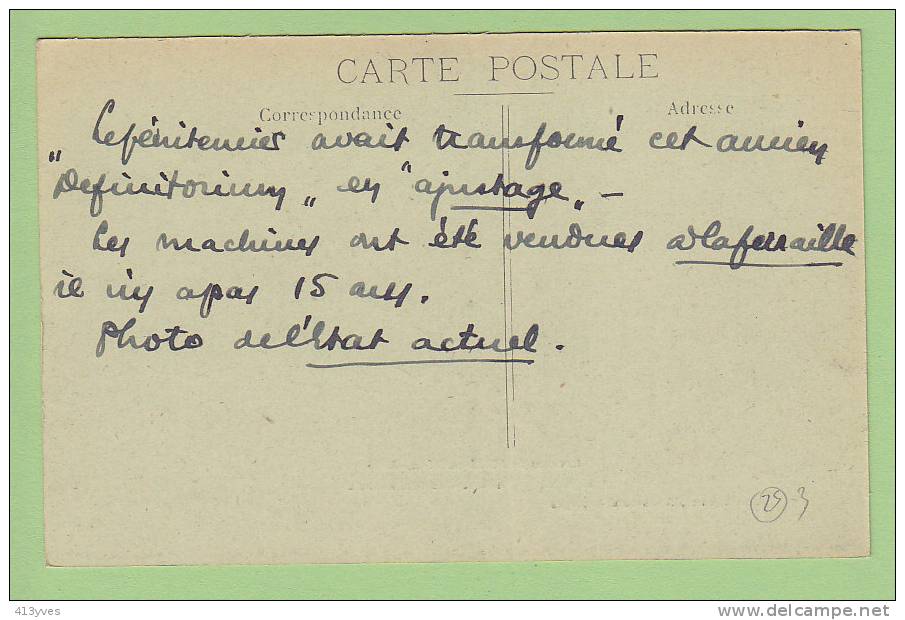 CARTE POSTALE
Correspondance
Adresse
Le pénitencier avait transformé cet ancien
„Definitorium„ en "ajustage„ –
Les machines ont été vendues à la ferraille
il n'y a pas 15 ans.
Photo de l'Etat actuel.
25 3
413yves
www.delcampe.net